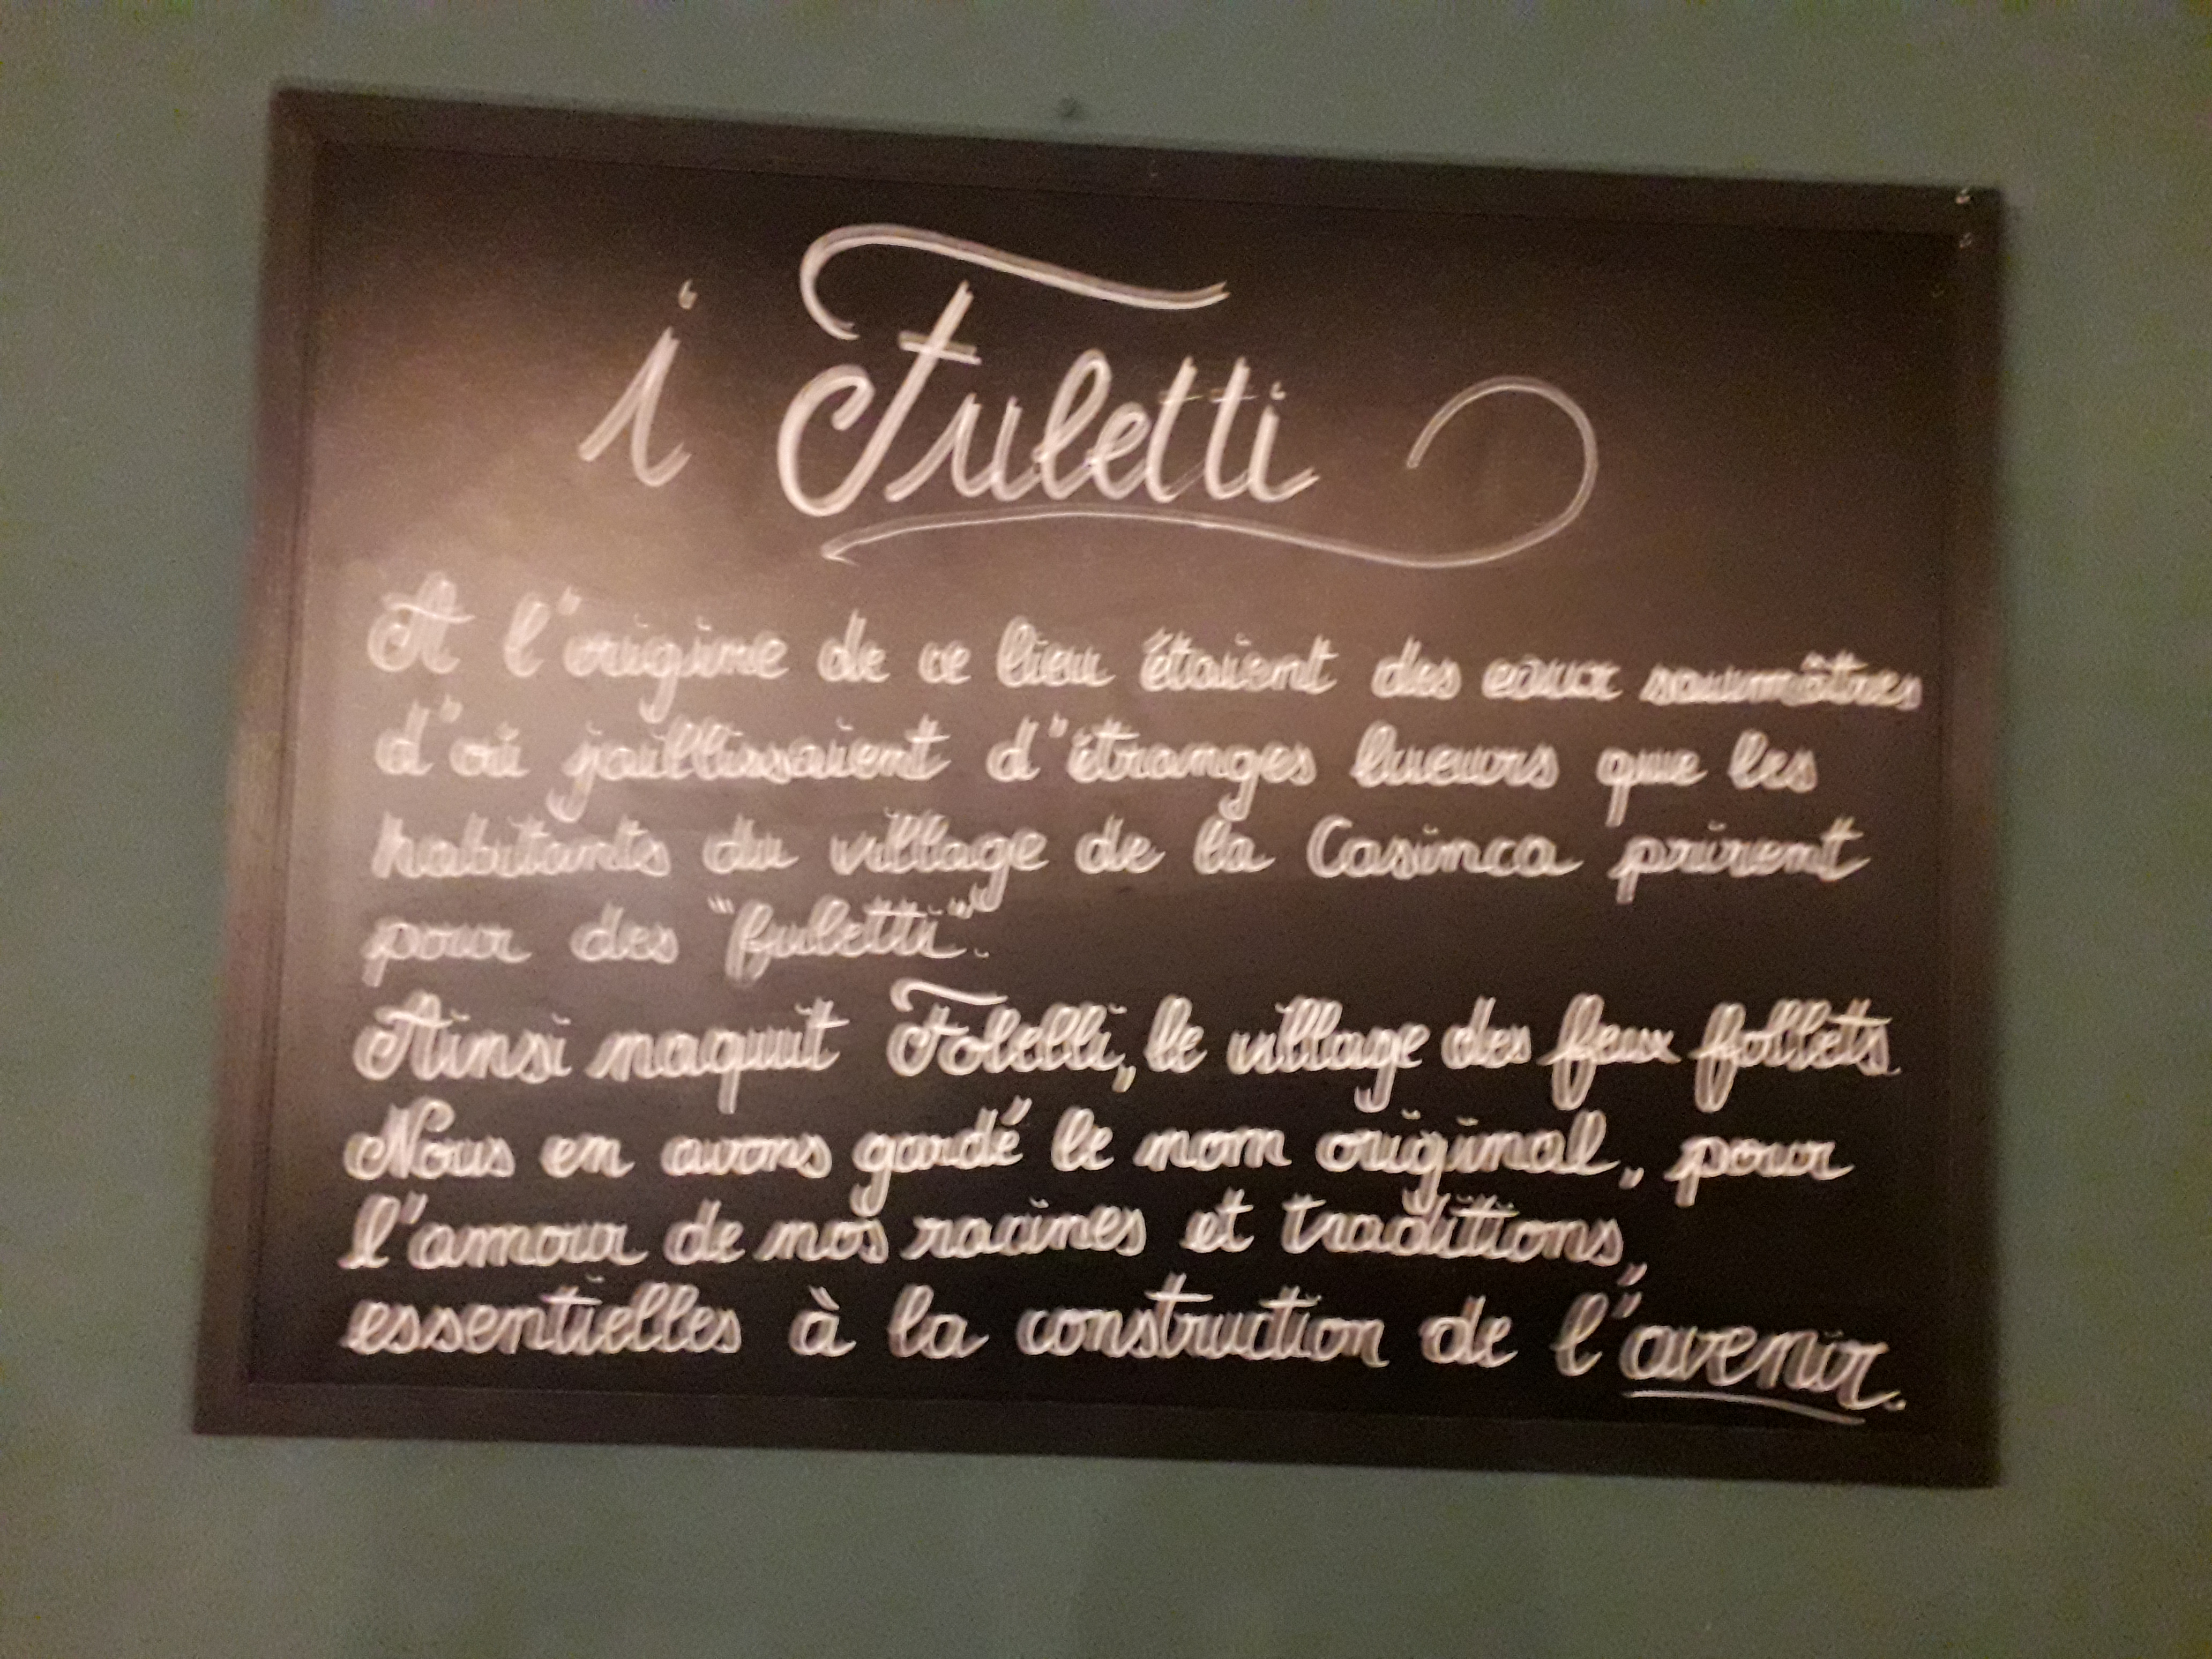 i Fuletti
A l'origine de ce lieu étaient des eaux saumâtres
d'où jaillissaient d'étranges lueurs que les
habitants du village de la Casinca prirent
pour des "fuletti".
Ainsi naquit Folelli, le village des feux follets.
Nous en avons gardé le nom original, pour
l'amour de nos racines et traditions,
essentielles à la construction de l'avenir.